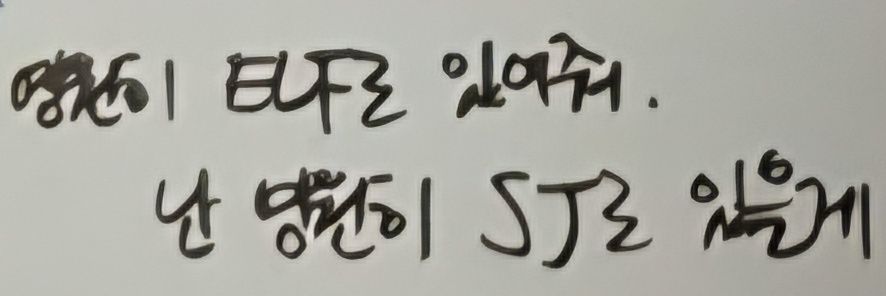 영원히 ELF로 있어줘.
난 영원히 SJ로 있을게